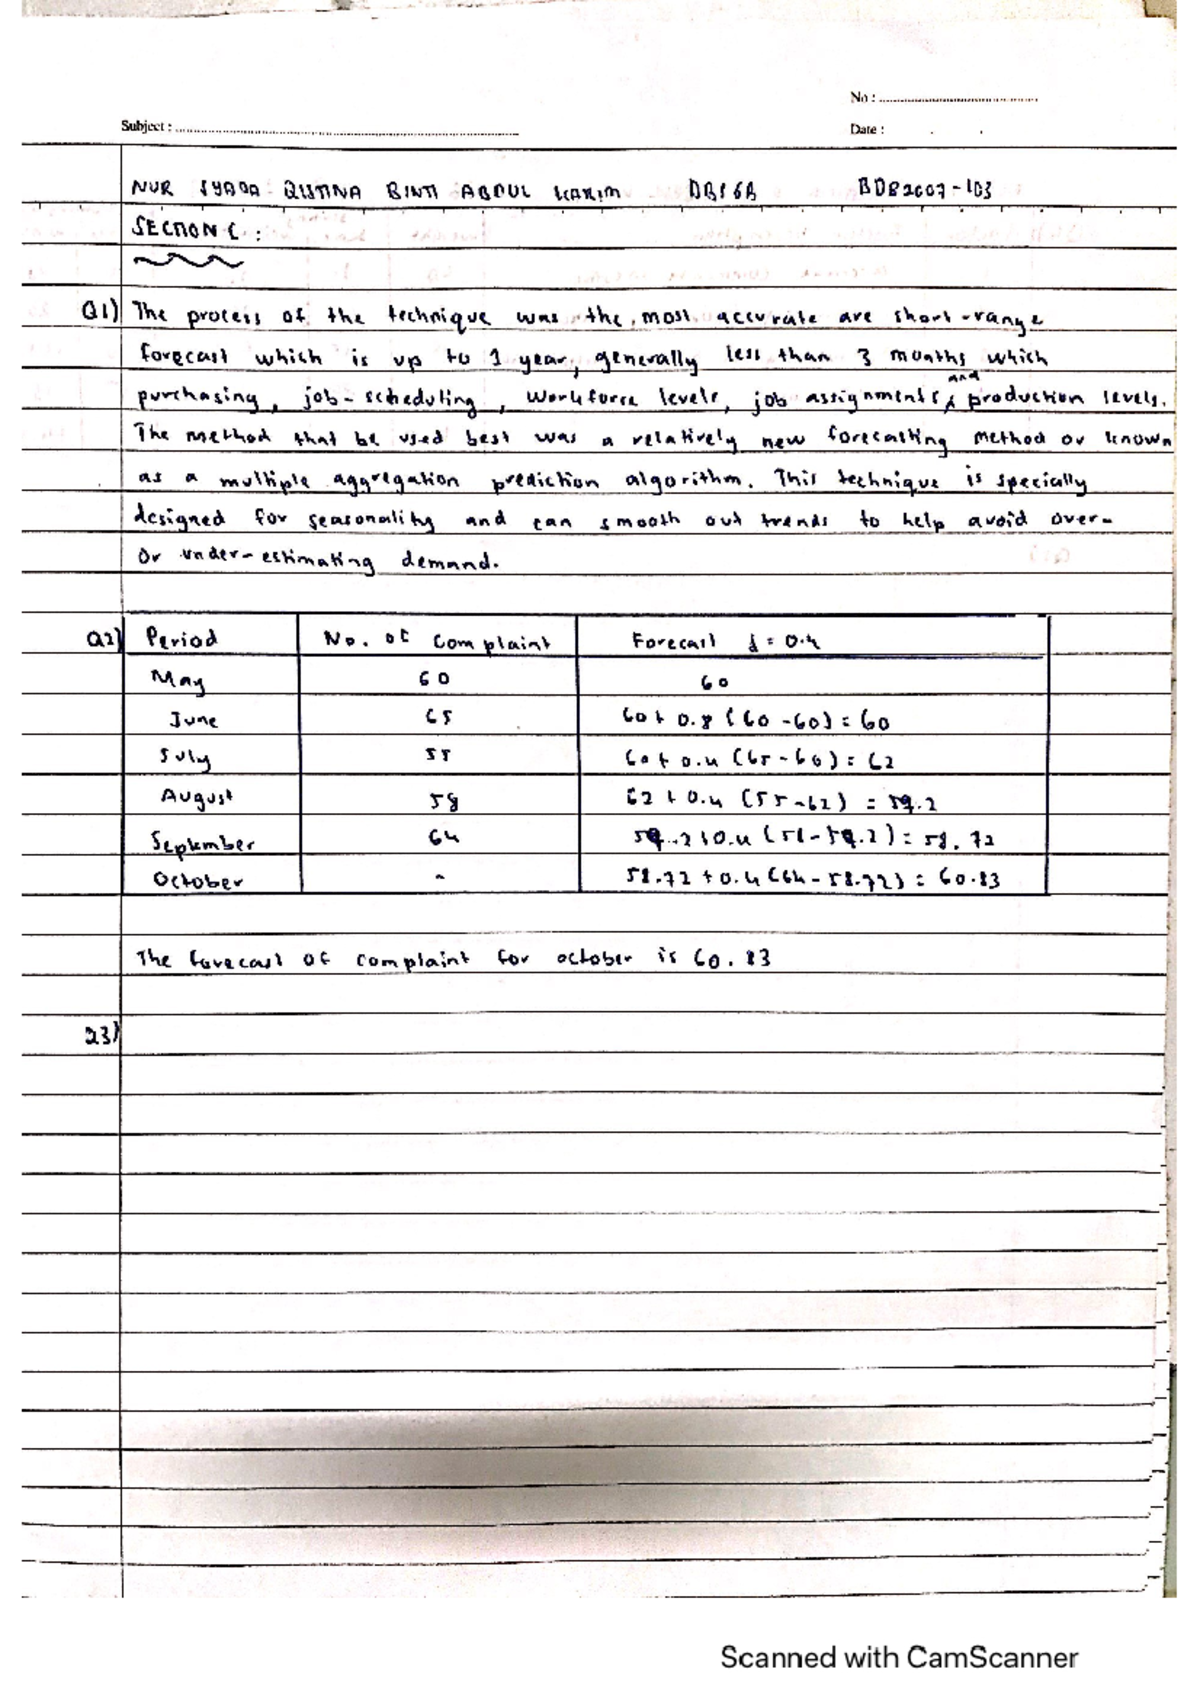 No :
Subject :
Date :
NUR SYADA QISTINA BINTI ABDUL KARIM DBS6B BDB2007-103
SECTION C :
Q1) The process of the technique was the most accurate are short-range
forecast which is up to 1 year, generally less than 3 months which
purchasing, job-scheduling, workforce levels, job assignments, and production levels.
The method that be used best was a relatively new forecasting method or known
as a multiple aggregation prediction algorithm. This technique is specially
designed for seasonality and can smooth out trends to help avoid over-
or under-estimating demand.
Q2) Period No. of Complaint Forecast = 0.4
May 60 60
June 65 60 + 0.8 (60 - 60) = 60
July 55 60 + 0.4 (65 - 60) = 62
August 58 62 + 0.4 (55 - 62) = 59.2
September 64 59.2 + 0.4 (58 - 59.2) = 58.72
October - 58.72 + 0.4 (64 - 58.72) = 60.83
The forecast of complaint for october is 60.83
Q3)
Scanned with CamScanner